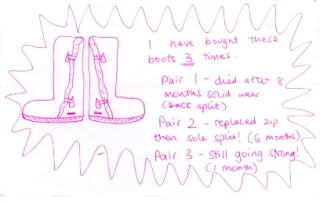 I have bought these
boots 3 times.
Pair 1 - died after 8
months solid wear
(back split)
Pair 2 - replaced zip
then sole split! (6 months)
Pair 3 - still going strong!
(1 month)